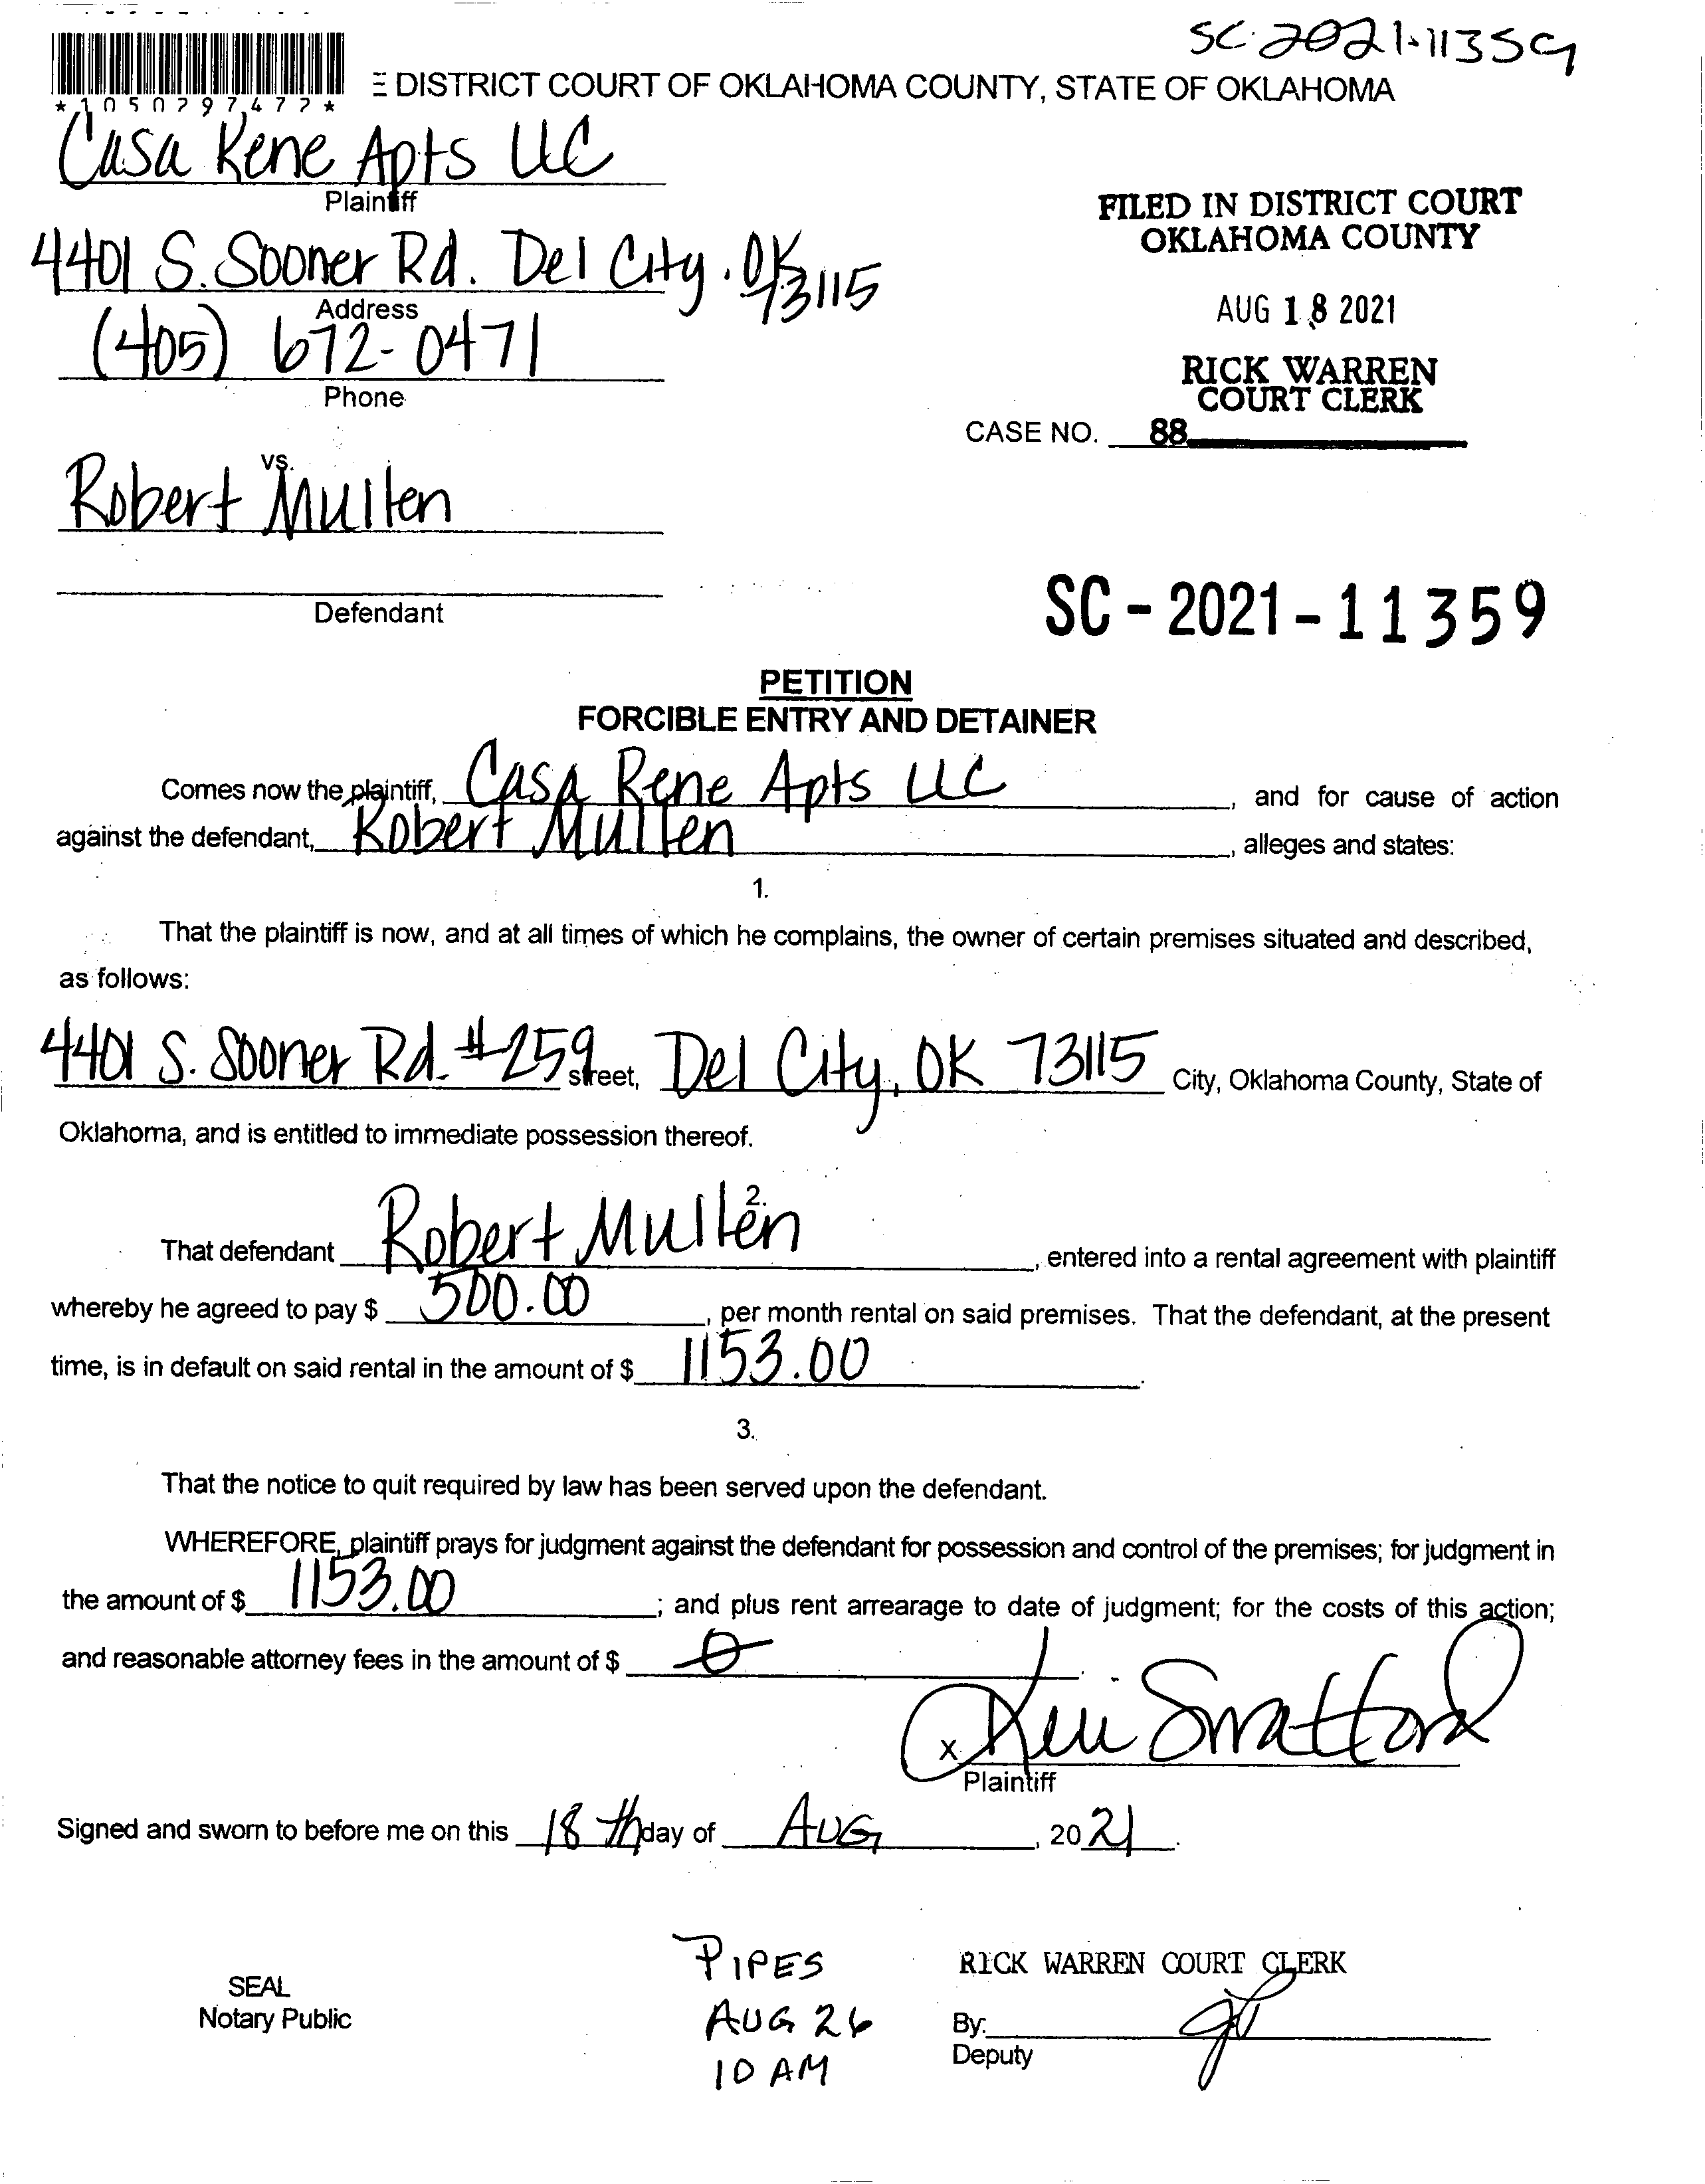 SC-2021-11359
*1050797477*
E DISTRICT COURT OF OKLAHOMA COUNTY, STATE OF OKLAHOMA
Casa Rene Apts LLC
Plaintiff
4401 S. Sooner Rd. Del City. OK 73115
Address
(405) 672-0471
Phone
FILED IN DISTRICT COURT
OKLAHOMA COUNTY
AUG 18 2021
RICK WARREN
COURT CLERK
CASE NO. 88
vs.
Robert Mullen
Defendant
SC-2021-11359
PETITION
FORCIBLE ENTRY AND DETAINER
Comes now the plaintiff, Casa Rene Apts LLC, and for cause of action
against the defendant, Robert Mullen, alleges and states:
1.
That the plaintiff is now, and at all times of which he complains, the owner of certain premises situated and described,
as follows:
4401 S. Sooner Rd. #259 street, Del City, OK 73115 City, Oklahoma County, State of
Oklahoma, and is entitled to immediate possession thereof.
2.
That defendant Robert Mullen, entered into a rental agreement with plaintiff
whereby he agreed to pay $ 500.00, per month rental on said premises. That the defendant, at the present
time, is in default on said rental in the amount of $ 1153.00.
3.
That the notice to quit required by law has been served upon the defendant.
WHEREFORE, plaintiff prays for judgment against the defendant for possession and control of the premises; for judgment in
the amount of $ 1153.00; and plus rent arrearage to date of judgment; for the costs of this action;
and reasonable attorney fees in the amount of $ 0
X
Plaintiff
Signed and sworn to before me on this 18th day of AUG, 2021.
SEAL
Notary Public
PIPES
AUG 26
10 AM
RICK WARREN COURT CLERK
By:
Deputy